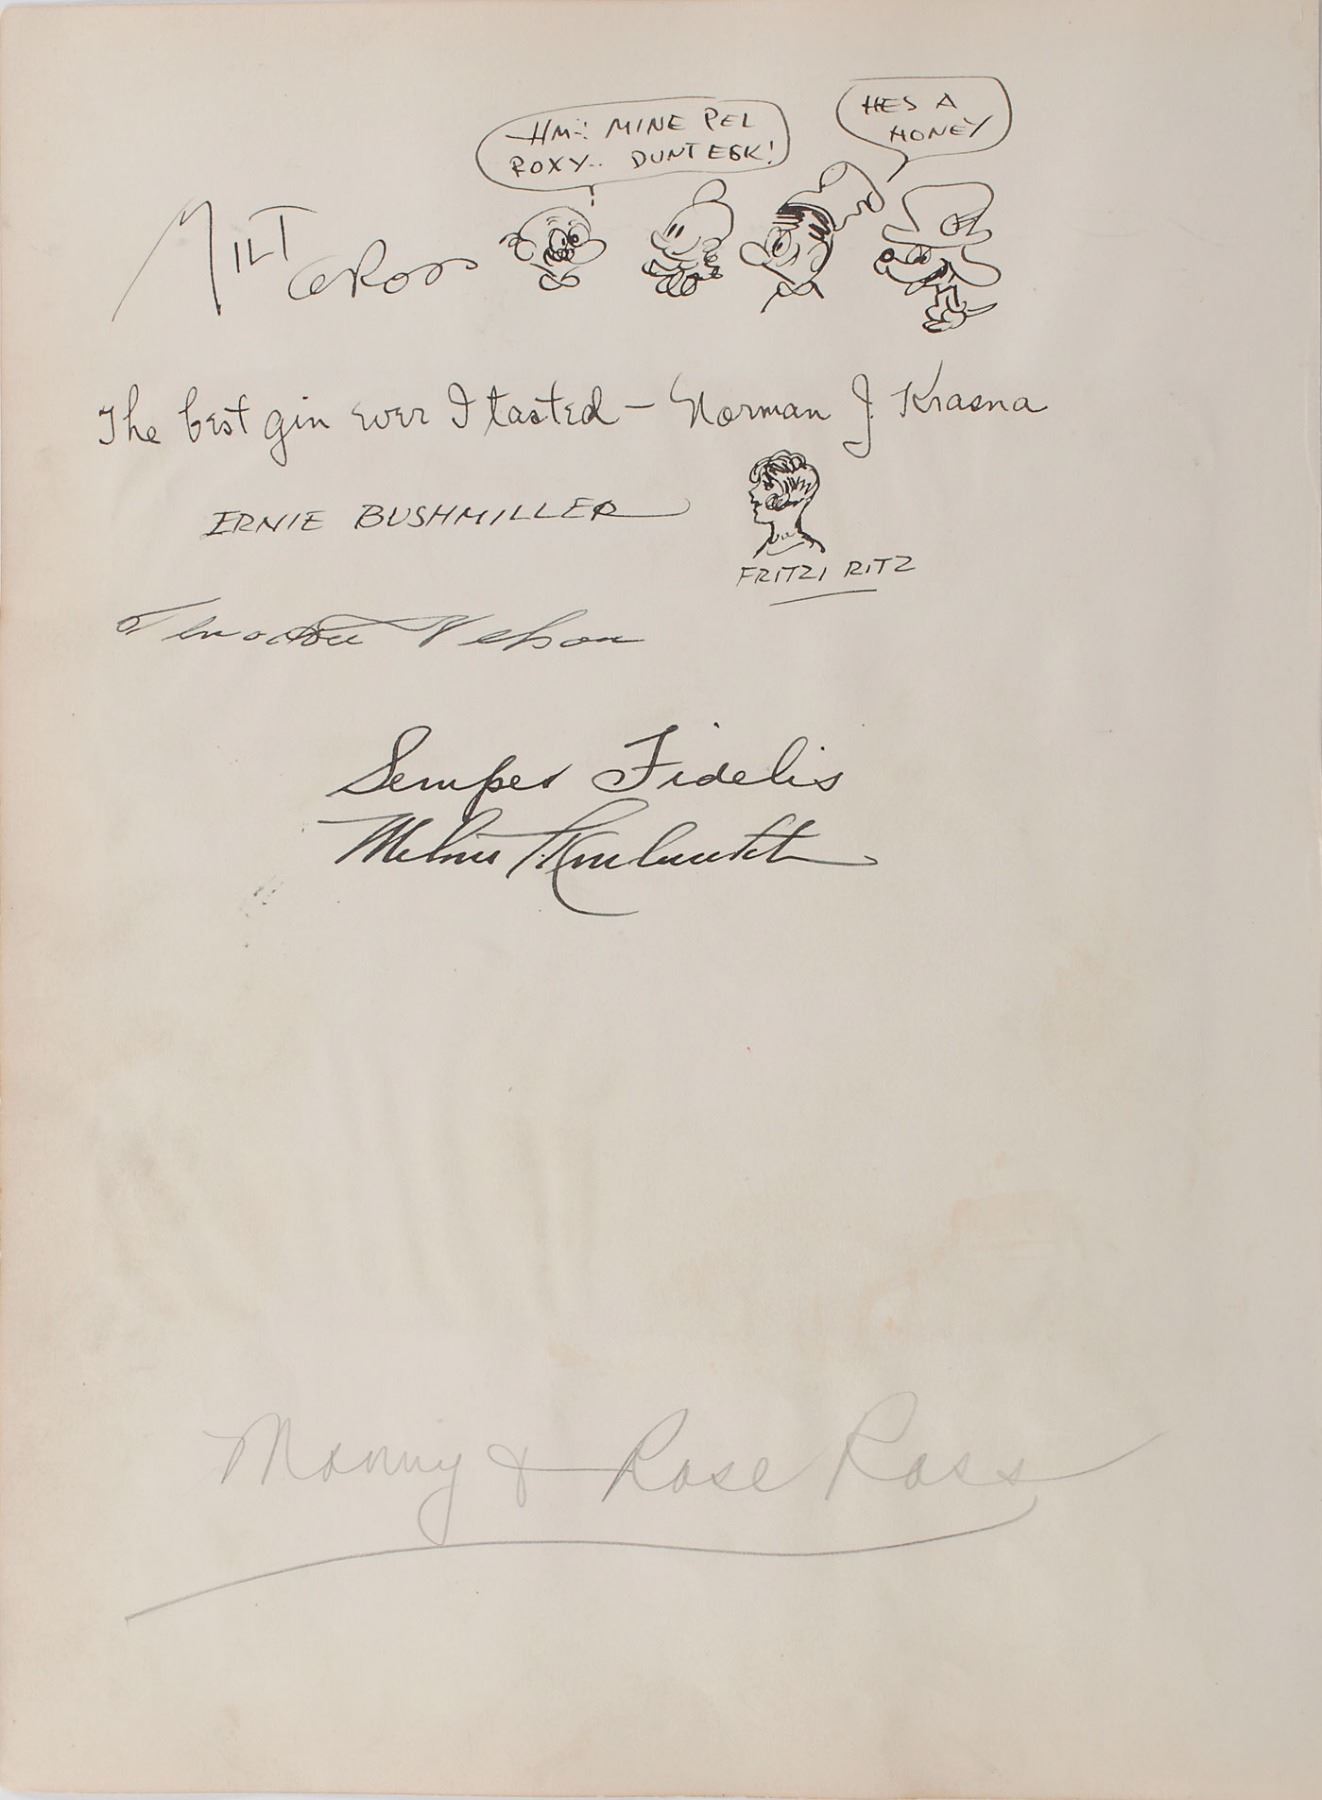 HM-! MINE PEL
ROXY.. DUNT ESK!
HES A
HONEY
MILT GROSS
The best gin ever I tasted – Norman J. Krasna
ERNIE BUSHMILLER
FRITZI RITZ
Nelson
Semper Fidelis
Manny & Rose Ross